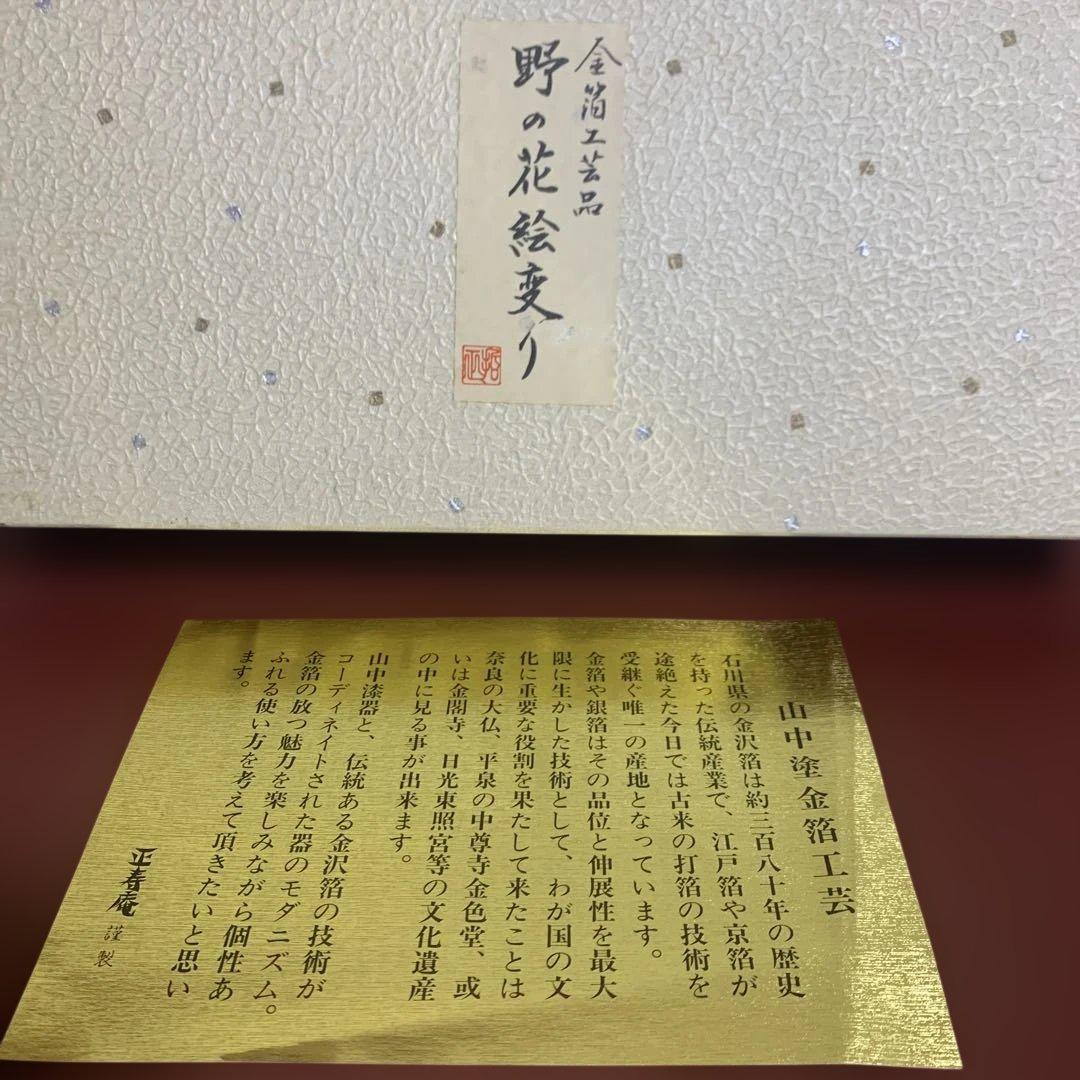 金箔工芸品
野の花絵変り
山中塗金箔工芸
石川県の金沢箔は約三百八十年の歴史
を持った伝統産業で、江戸箔や京箔が
途絶えた今日では古来の打箔の技術を
受継ぐ唯一の産地となっています。
金箔や銀箔はその品位と伸展性を最大
限に生かした技術として、わが国の文
化に重要な役割を果たして来たことは
奈良の大仏、平泉の中尊寺金色堂、或
いは金閣寺、日光東照宮等の文化遺産
の中に見る事が出来ます。
山中漆器と、伝統ある金沢箔の技術が
コーディネイトされた器のモダニズム。
金箔の放つ魅力を楽しみながら個性あ
ふれる使い方を考えて頂きたいと思い
ます。
正寿庵 謹製